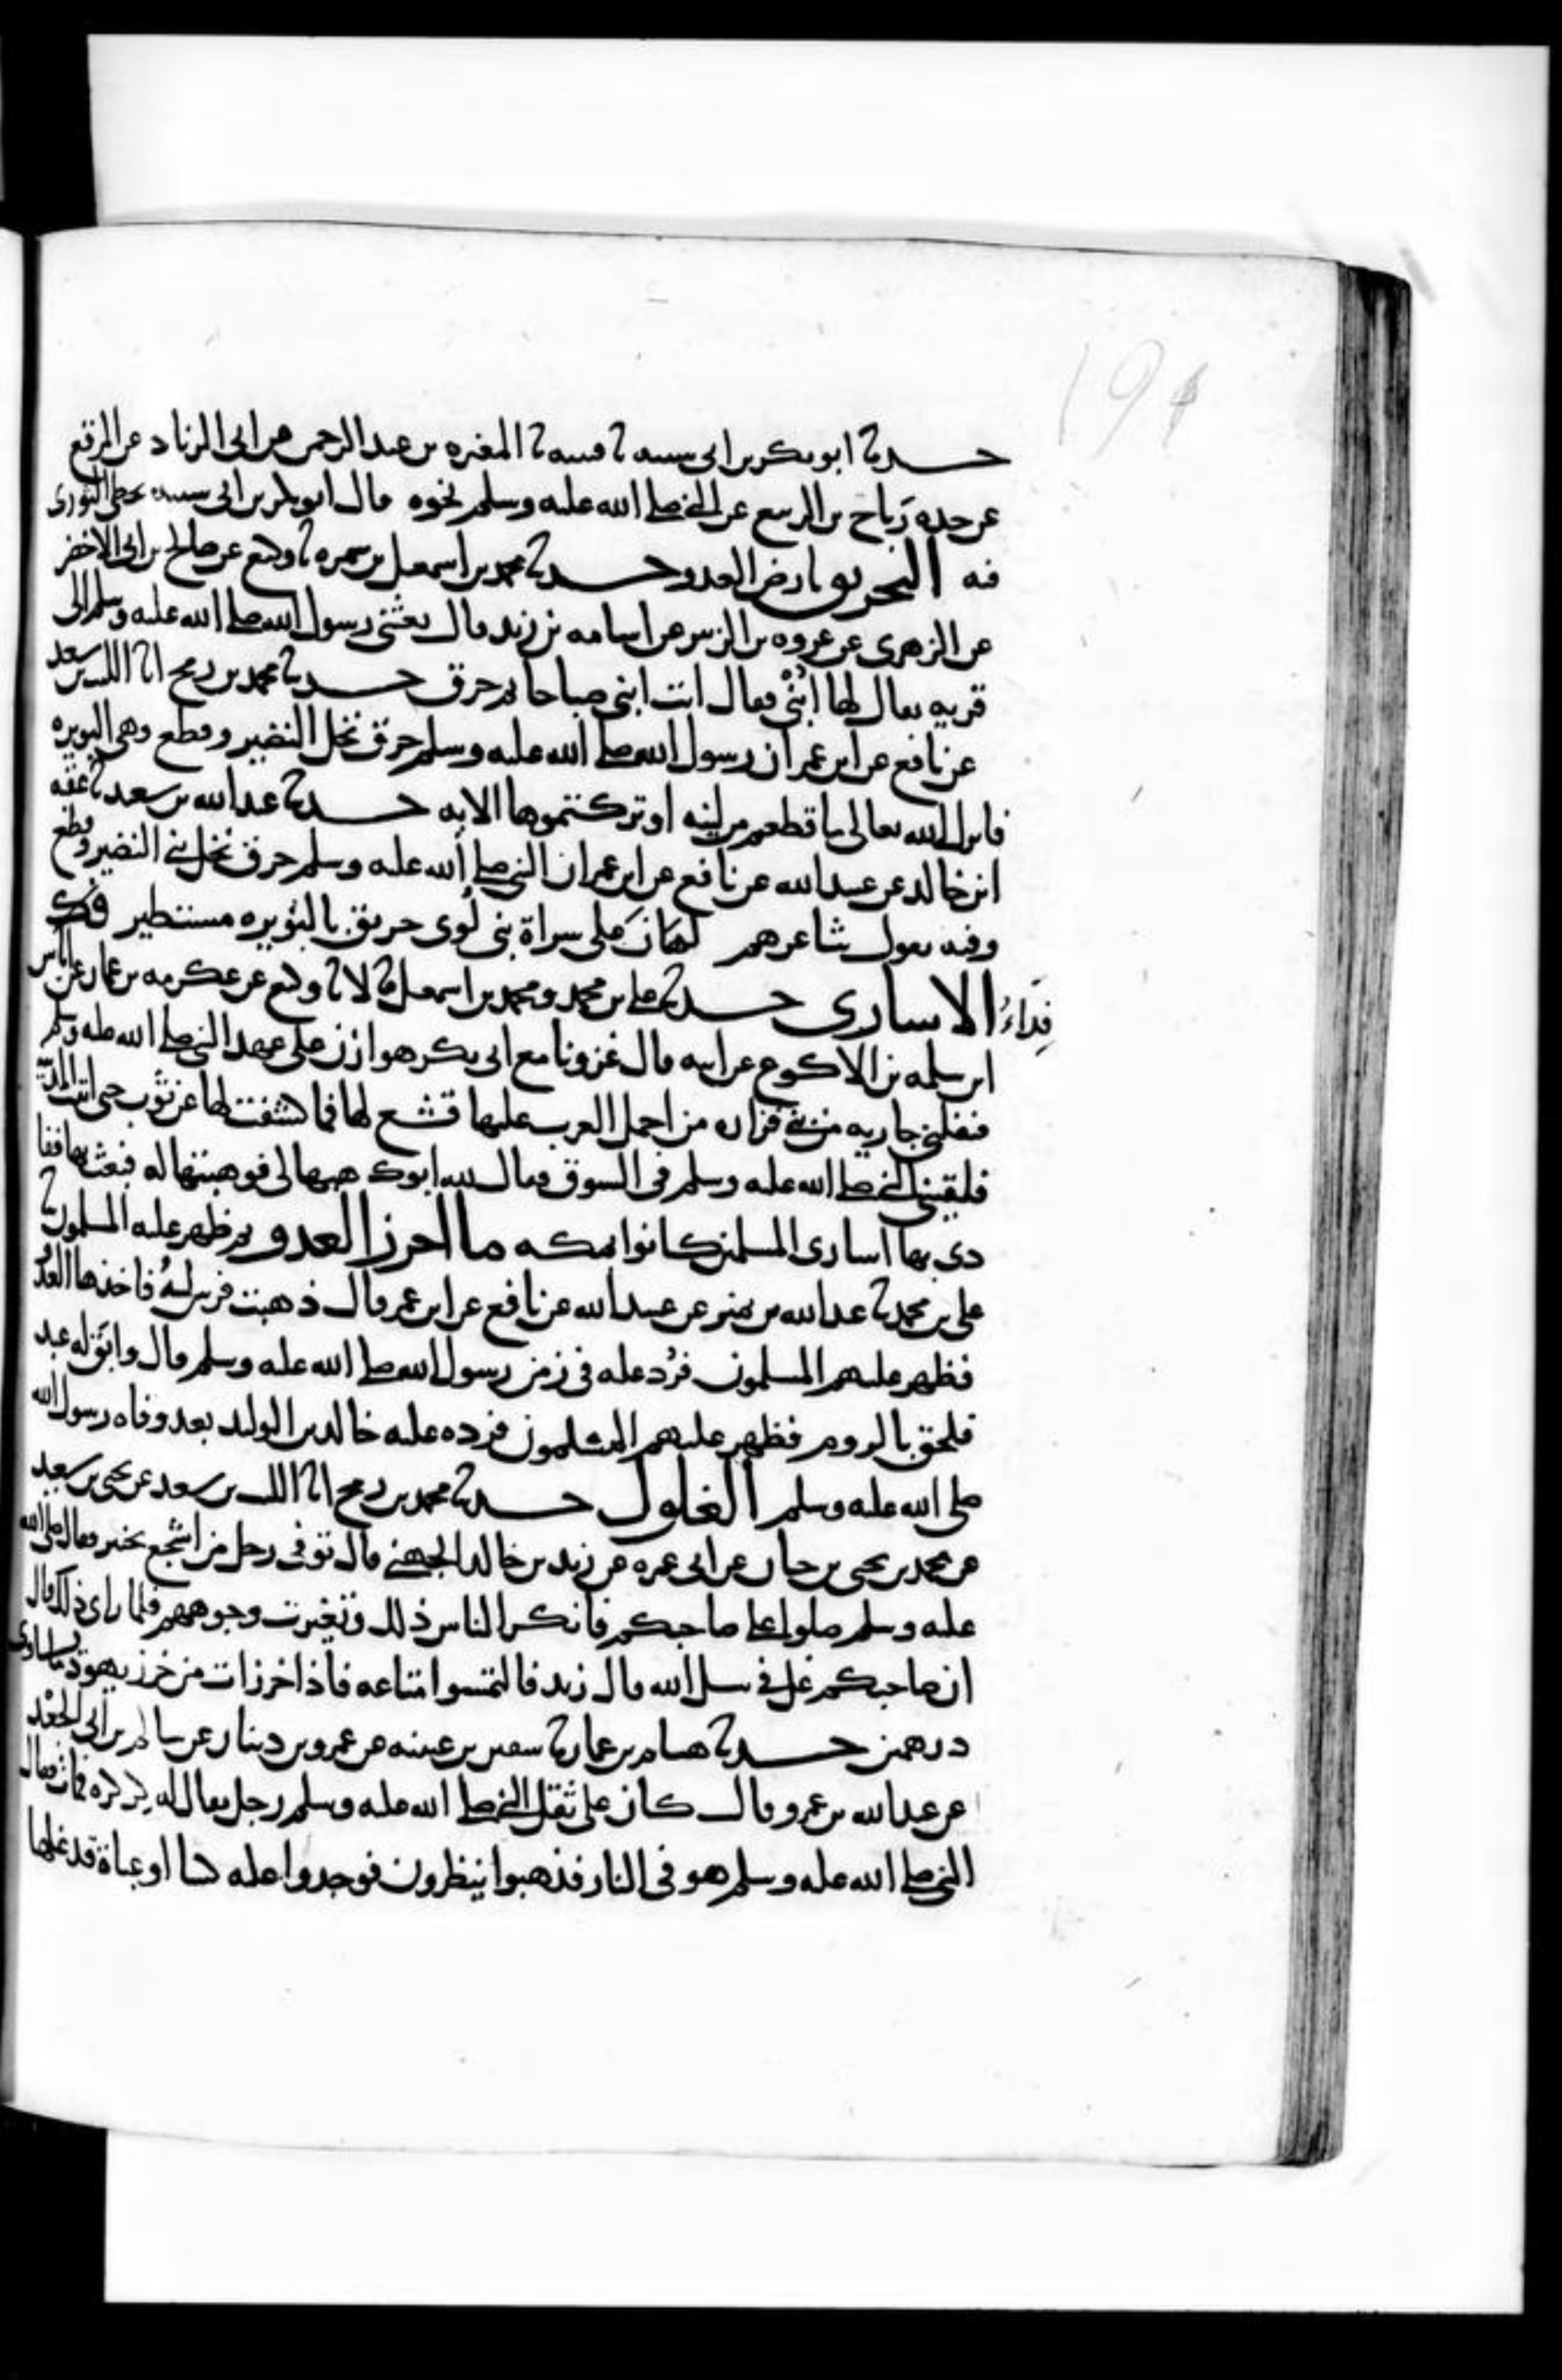 194
حدثنا ابو بكر بن ابى شيبه ثنا قتيبه ثنا المغيره بن عبد الرحمن عن ابى الزناد عن المرقع
عن جده رَباح بن الربيع عن النبى صلى الله عليه وسلم نحوه قال ابو بكر بن ابى شيبه يخطى الثورى
فيه التحريق بارض العدو حدثنا محمد بن اسمعيل بن سمره ثنا وكيع عن صالح بن ابى الاخضر
عن الزهرى عن عروه بن الزبير عن اسامه بن زيد قال بعثنى رسول الله صلى الله عليه وسلم الى
قريه يقال لها اُبْنْى فقال ائت ابنى صباحا ثم حرق حدثنا محمد بن رمح انا الليث بن سعد
عن نافع عن ابن عمر ان رسول الله صلى الله عليه وسلم حرق نخل النضير وقطع وهى البويره
فانزل الله تعالى ما قطعتم من لينه او تركتموها الايه حدثنا عبد الله بن سعد ثنا عُقْبه
ابن خالد عن عبيد الله عن نافع عن ابن عمر ان النبى صلى الله عليه وسلم حرق نخل بنى النضير وقطع
وفيه يقول شاعرهم لَهَان عَلى سراة بنى لُوى حريق بالبُوَيره مستطير فك
فِدَاءُ الاسارى حدثنا على بن محمد ومحمد بن اسمعيل قالا ثنا وكيع عن عكرمه بن عمار عن اياس
ابن سلمه بن الاكوع عن ابيه قال غزونا مع ابى بكر هوازن على عهد النبى صلى الله عليه وسلم
فنفلنى جاريه من بنى فزاره من اجمل العرب عليها قشع لها فما كشفت لها عن ثَوْب حتى اتيت المدينة
فلقينى النبى صلى الله عليه وسلم فى السوق فقال لله ابوك هبها لى فوهبتها له فبعث بها ففا
دى بها اسارى المسلمين كانوا بمكه ما احرز العدو ثم ظهر عليه المسلمون ثنا
على بن محمد ثنا عبد الله بن نمير عن عبيد الله عن نافع عن ابن عمر قال ذهبت فرس لهُ فاخذها العدُ
فظهر عليهم المسلمون فرُد عليه فى زمن رسول الله صلى الله عليه وسلم قال وابَق له عبد
فلحق بالروم فظهر عليهم المسلمون فرده عليه خالد بن الوليد بعد وفاه رسول الله
صلى الله عليه وسلم الغلول حدثنا محمد بن رمح انا الليث بن سعد عن يحيى بن سعيد
عن محمد بن يحيى بن حبان عن ابى عمره عن زيد بن خالد الجهنى قال توفى رجل من اشجع بخيبر فقال صلى الله
عليه وسلم صلوا على صاحبكم فانكر الناس ذلك وتغيرت وجوههم فلما راى ذلك قال
ان صاحبكم غل فى سبيل الله قال زيد فالتمسوا متاعه فاذا خرزات من خرز يهود ما تساوى
درهمين حدثنا هشام بن عمار ثنا سفين بن عيينه عن عمرو بن دينار عن سالم بن ابى الجَعْد
عن عبد الله بن عمرو قال كان على ثقل النبى صلى الله عليه وسلم رجل يقال له كركره فمات فقال
النبى صلى الله عليه وسلم هو فى النار فذهبوا ينظرون فوجدوا عليه كسا او عباة قد غلها